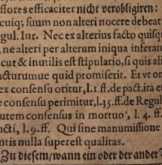 fores efficaciter nicht verobligiren:
cutiq; suum non alteri nocere debeat
gul. Iur. Nec ex alterius factu quisq
ne alteri per alterum iniqua inferat
cut & inutilis est stipulatio, si quis ali
acturumue quid promiserit. Et ve ob
ex consensu oritur, l.1 ff. de pact. ira
e consensu perimitur, l. 35. ff. de Regul
utem consensus in mortuo, l. 4. ff.
acti, l. 9. ff. Qui sine manumissione
ntis nulla superest qualitas.
Zu diesem/wann ein oder der ander